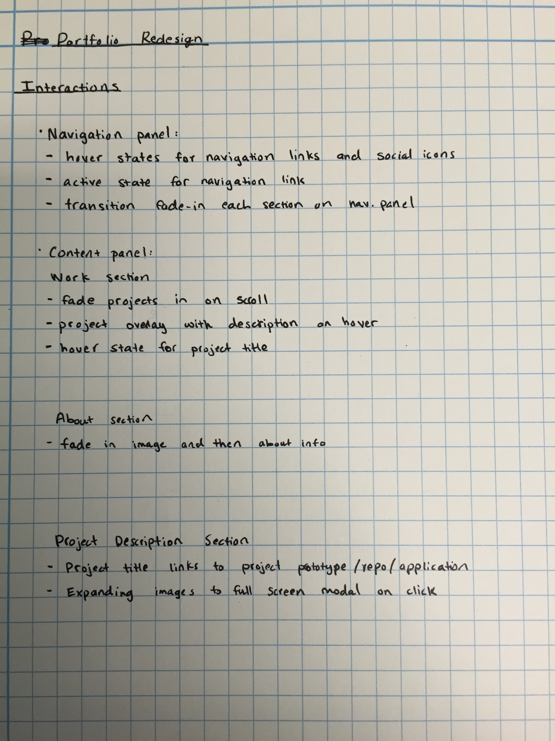 Portfolio Redesign
Interactions
· Navigation panel:
- hover states for navigation links and social icons
- active state for navigation link
- transition fade-in each section on nav. panel
· Content panel:
Work section
- fade projects in on scroll
- project overlay with description on hover
- hover state for project title
About section
- fade in image and then about info
Project Description Section
- Project title links to project pototype/repo/application
- Expanding images to full screen modal on click